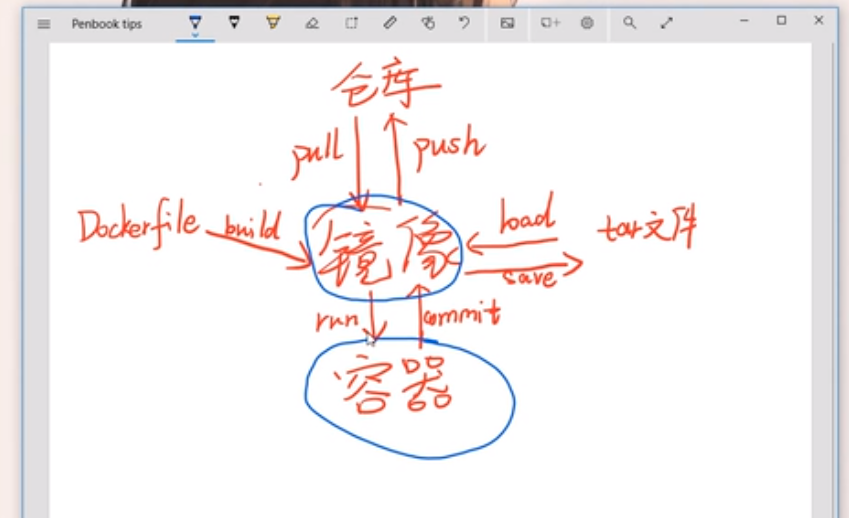 Penbook tips
仓库
pull push
Dockerfile build 镜像 load tar文件
save
run commit
容器